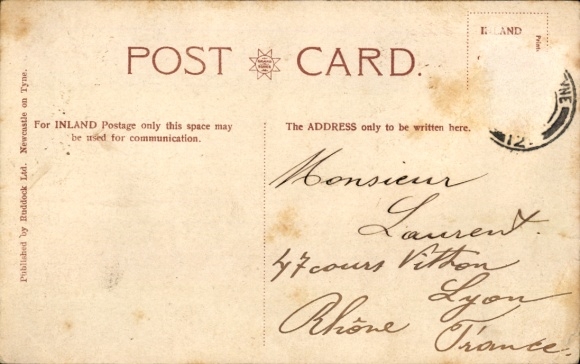 POST CARD.
INLAND
Published by Ruddock Ltd. Newcastle on Tyne.
For INLAND Postage only this space may
be used for communication.
The ADDRESS only to be written here.
YNE
12
Monsieur
Laurent.
47 cours Vitton
Lyon
Rhône France